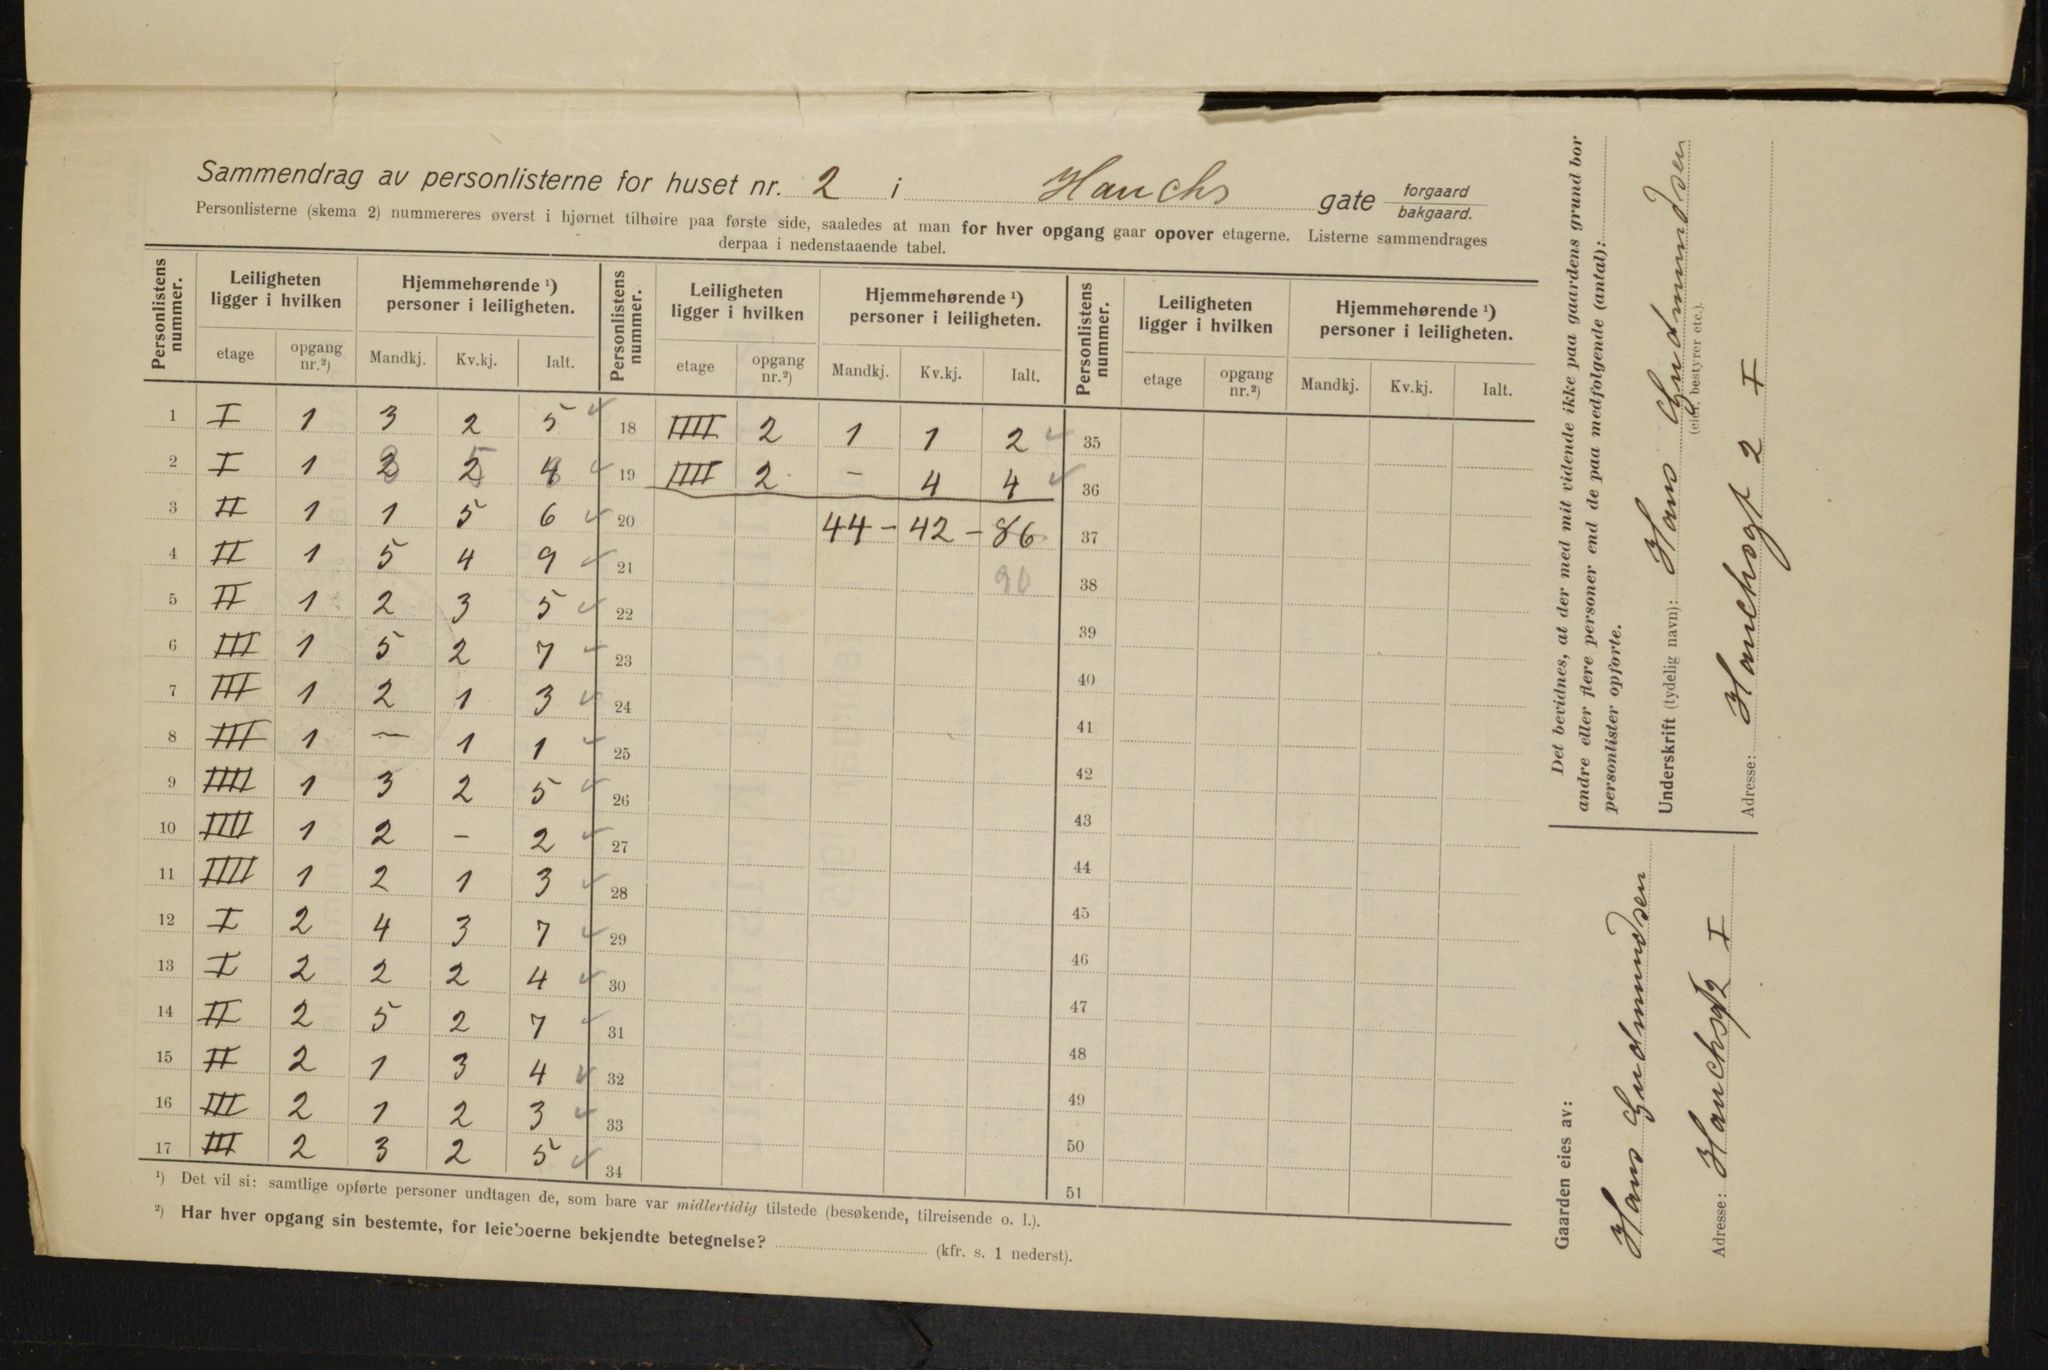 Sammendrag av personlisterne for huset nr. 2 i Hauchs gate forgaard
bakgaard.
Personlisterne (skema 2) nummereres øverst i hjørnet tilhøire paa første side, saaledes at man for hver opgang gaar opover etagerne. Listerne sammendrages
derpaa i nedenstaaende tabel.
Personlistens nummer. Leiligheten ligger i hvilken Hjemmehørende ¹) personer i leiligheten. Personlistens nummer. Leiligheten ligger i hvilken Hjemmehørende ¹) personer i leiligheten. Personlistens nummer. Leiligheten ligger i hvilken Hjemmehørende ¹) personer i leiligheten.
etage opgang nr.²) Mandkj. Kv.kj. Ialt. etage opgang nr.²) Mandkj. Kv.kj. Ialt. etage opgang nr.²) Mandkj. Kv.kj. Ialt.
1 I 1 3 2 5 ✓ 18 IIII 2 1 1 2 ✓ 35
2 I 1 2 2 4 ✓ 19 IIII 2 – 4 4 ✓ 36
3 II 1 1 5 6 ✓ 20 44 – 42 – 86 37
4 II 1 5 4 9 ✓ 21 90 38
5 II 1 2 3 5 ✓ 22 39
6 III 1 5 2 7 ✓ 23 40
7 III 1 2 1 3 ✓ 24 41
8 III 1 – 1 1 ✓ 25 42
9 IIII 1 3 2 5 ✓ 26 43
10 IIII 1 2 – 2 ✓ 27 44
11 IIII 1 2 1 3 ✓ 28 45
12 I 2 4 3 7 ✓ 29 46
13 I 2 2 2 4 ✓ 30 47
14 II 2 5 2 7 ✓ 31 48
15 II 2 1 3 4 ✓ 32 49
16 III 2 1 2 3 ✓ 33 50
17 III 2 3 2 5 ✓ 34 51
¹) Det vil si: samtlige opførte personer undtagen de, som bare var midlertidig tilstede (besøkende, tilreisende o. l.).
²) Har hver opgang sin bestemte, for leieboerne bekjendte betegnelse? (kfr. s. 1 nederst).
Det bevidnes, at der med mit vidende ikke paa gaardens grund bor
andre eller flere personer end de paa medfølgende (antal):
personlister opførte.
Underskrift (tydelig navn): Hans Gudmundsen
(eier, bestyrer etc.).
Adresse: Hauchsgt 2 I
Gaarden eies av:
Hans Gudmundsen
Adresse: Hauchsgt 2 I